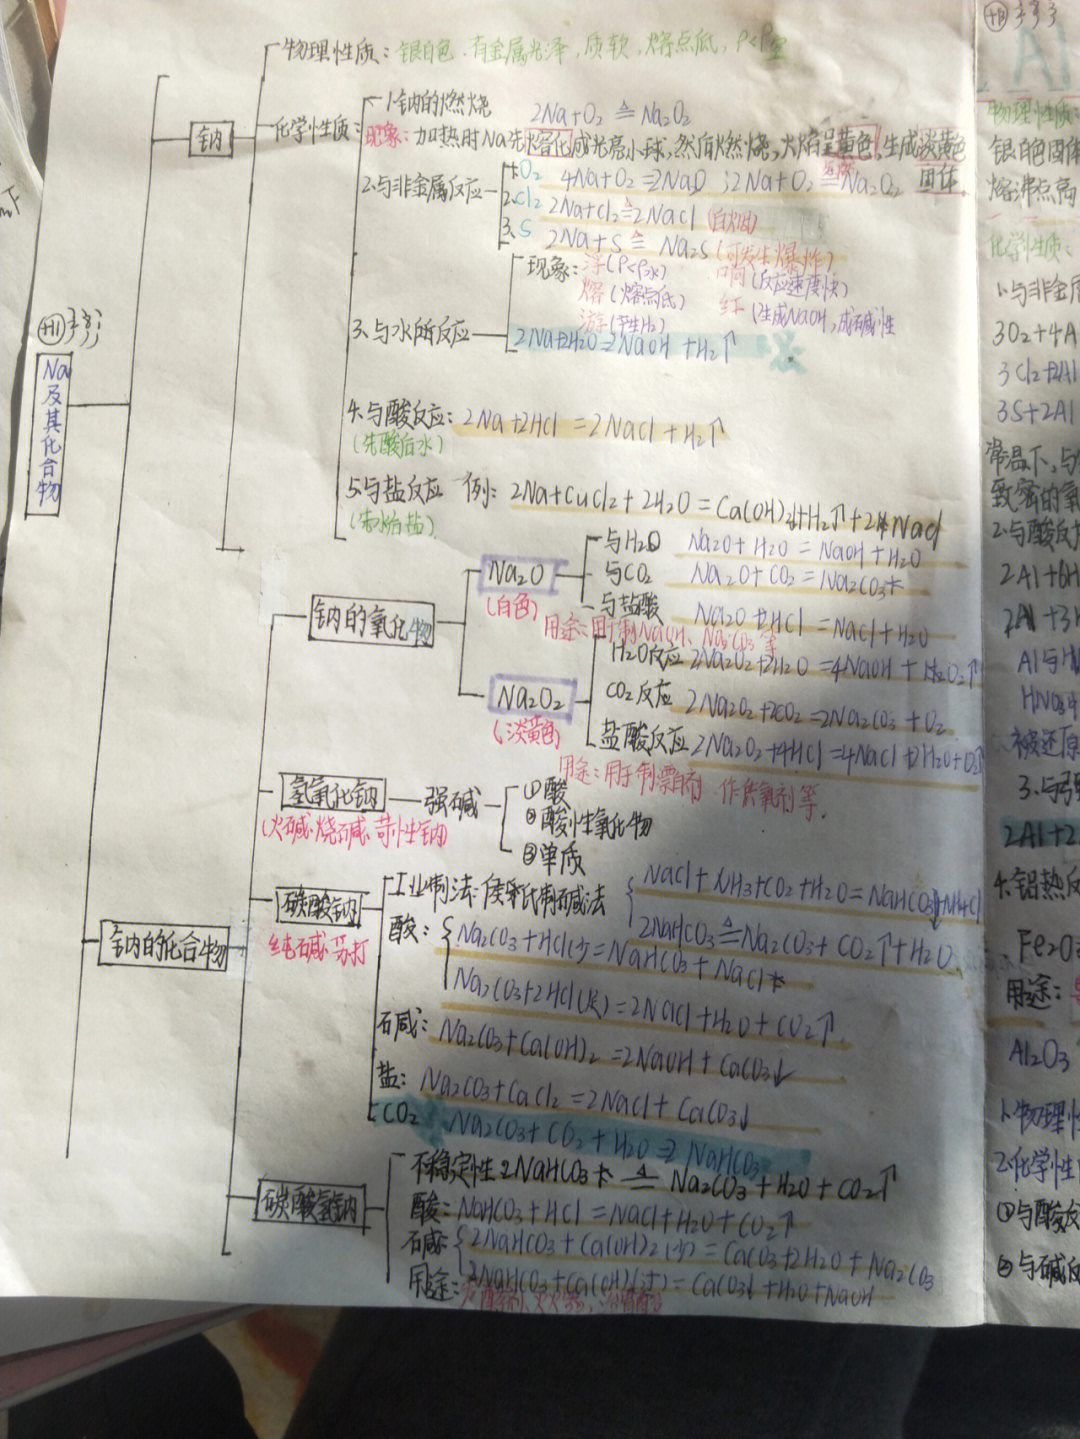 物理性质：银白色、有金属光泽，质软，熔点低，ρ<ρ
钠
化学性质：
1.钠的燃烧 2Na+O₂ ≜ Na₂O₂
现象：加热时Na先熔化成光亮小球，然后燃烧，火焰呈黄色，生成淡黄色固体
2.与非金属反应
1.O₂ 4Na+O₂=2Na₂O；2Na+O₂=Na₂O₂
2.Cl₂ 2Na+Cl₂≜2NaCl (白烟)
3.S 2Na+S≜Na₂S (可发生爆炸)
现象：浮(ρ<ρ水) 响(反应速度快)
熔(熔点低) 红(生成NaOH，成碱性
游(产生H₂)
3.与水的反应
2Na+2H₂O=2NaOH+H₂↑
(+1)
Na及其化合物
4.与酸反应：2Na+2HCl=2NaCl+H₂↑
(先酸后水)
5.与盐反应 例：2Na+CuCl₂+2H₂O=Ca(OH)₂↓+H₂↑+2NaCl
(先水后盐)
钠的氧化物
Na₂O
(白色)
与H₂O Na₂O+H₂O=NaOH+H₂O
与CO₂ Na₂O+CO₂=Na₂CO₃
与盐酸 Na₂O+2HCl=NaCl+H₂O
用途：用于制NaOH、Na₂CO₃等
Na₂O₂
(淡黄色)
H₂O反应 2Na₂O₂+2H₂O=4NaOH+O₂↑
CO₂反应 2Na₂O₂+2CO₂=2Na₂CO₃+O₂
盐酸反应 2Na₂O₂+4HCl=4NaCl+2H₂O+O₂↑
用途：用于制漂白剂 作供氧剂等.
氢氧化钠
(火碱、烧碱、苛性钠)
强碱
①酸
②酸性氧化物
③单质
钠的化合物
碳酸钠
纯碱、苏打
工业制法：侯氏制碱法
NaCl+NH₃+CO₂+H₂O=NaHCO₃↓+NH₄Cl
2NaHCO₃≜Na₂CO₃+CO₂↑+H₂O
酸：
Na₂CO₃+HCl(少)=NaHCO₃+NaCl
Na₂CO₃+2HCl(足)=2NaCl+H₂O+CO₂↑
碱：Na₂CO₃+Ca(OH)₂=2NaOH+CaCO₃↓
盐：Na₂CO₃+CaCl₂=2NaCl+CaCO₃↓
CO₂ Na₂CO₃+CO₂+H₂O=2NaHCO₃
碳酸氢钠
不稳定性：2NaHCO₃≜Na₂CO₃+H₂O+CO₂↑
酸：NaHCO₃+HCl=NaCl+H₂O+CO₂↑
碱：
2NaHCO₃+Ca(OH)₂(少)=CaCO₃+2H₂O+Na₂CO₃
2NaHCO₃+Ca(OH)(过)=CaCO₃↓+H₂O+NaOH
用途：
(+1)
Al
物理性质：
银白色固体
熔沸点高
化学性质：
1.与非金属
3O₂+4A
3Cl₂+2Al
3S+2Al
常温下，与
致密的氧
2.与酸反应
2Al+6H
2Al+3H
Al与HN
HNO₃
被还原
3.与强
2Al+2
4.铝热反
Fe₂O₃
用途：
Al₂O₃
1.物理性
2.化学性
①与酸反
②与碱反